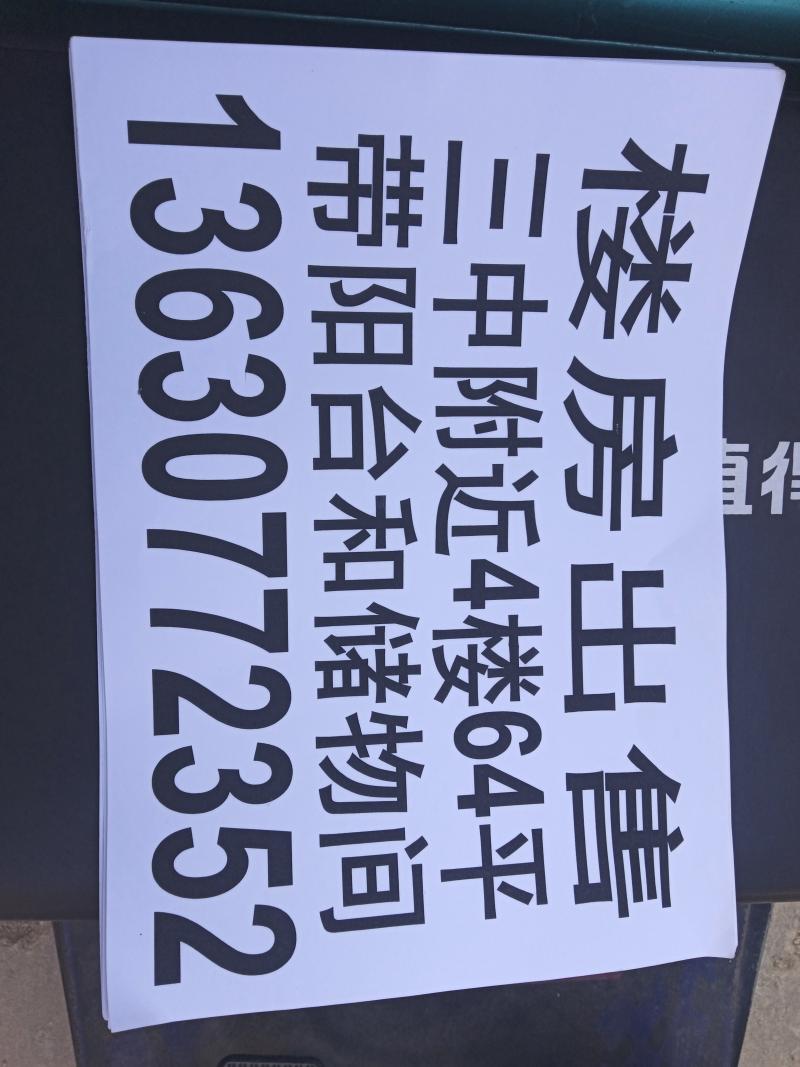 楼房出售
三中附近4楼64平
带阳台和储物间
13630772352
值得